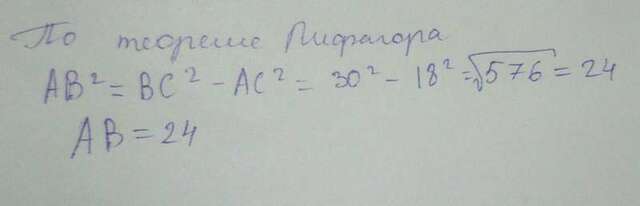 По теореме Пифагора
AB² = BC² - AC² = 30² - 18² = √576 = 24
AB = 24